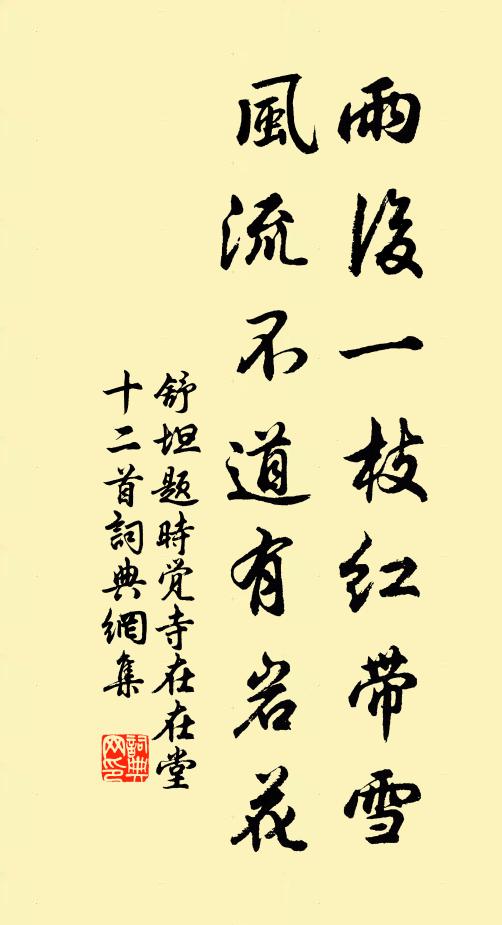 雨後一枝红帶雪
風流不道有岩花
舒坦题時覚寺在在堂
十二首詞典網集
詞典
网印